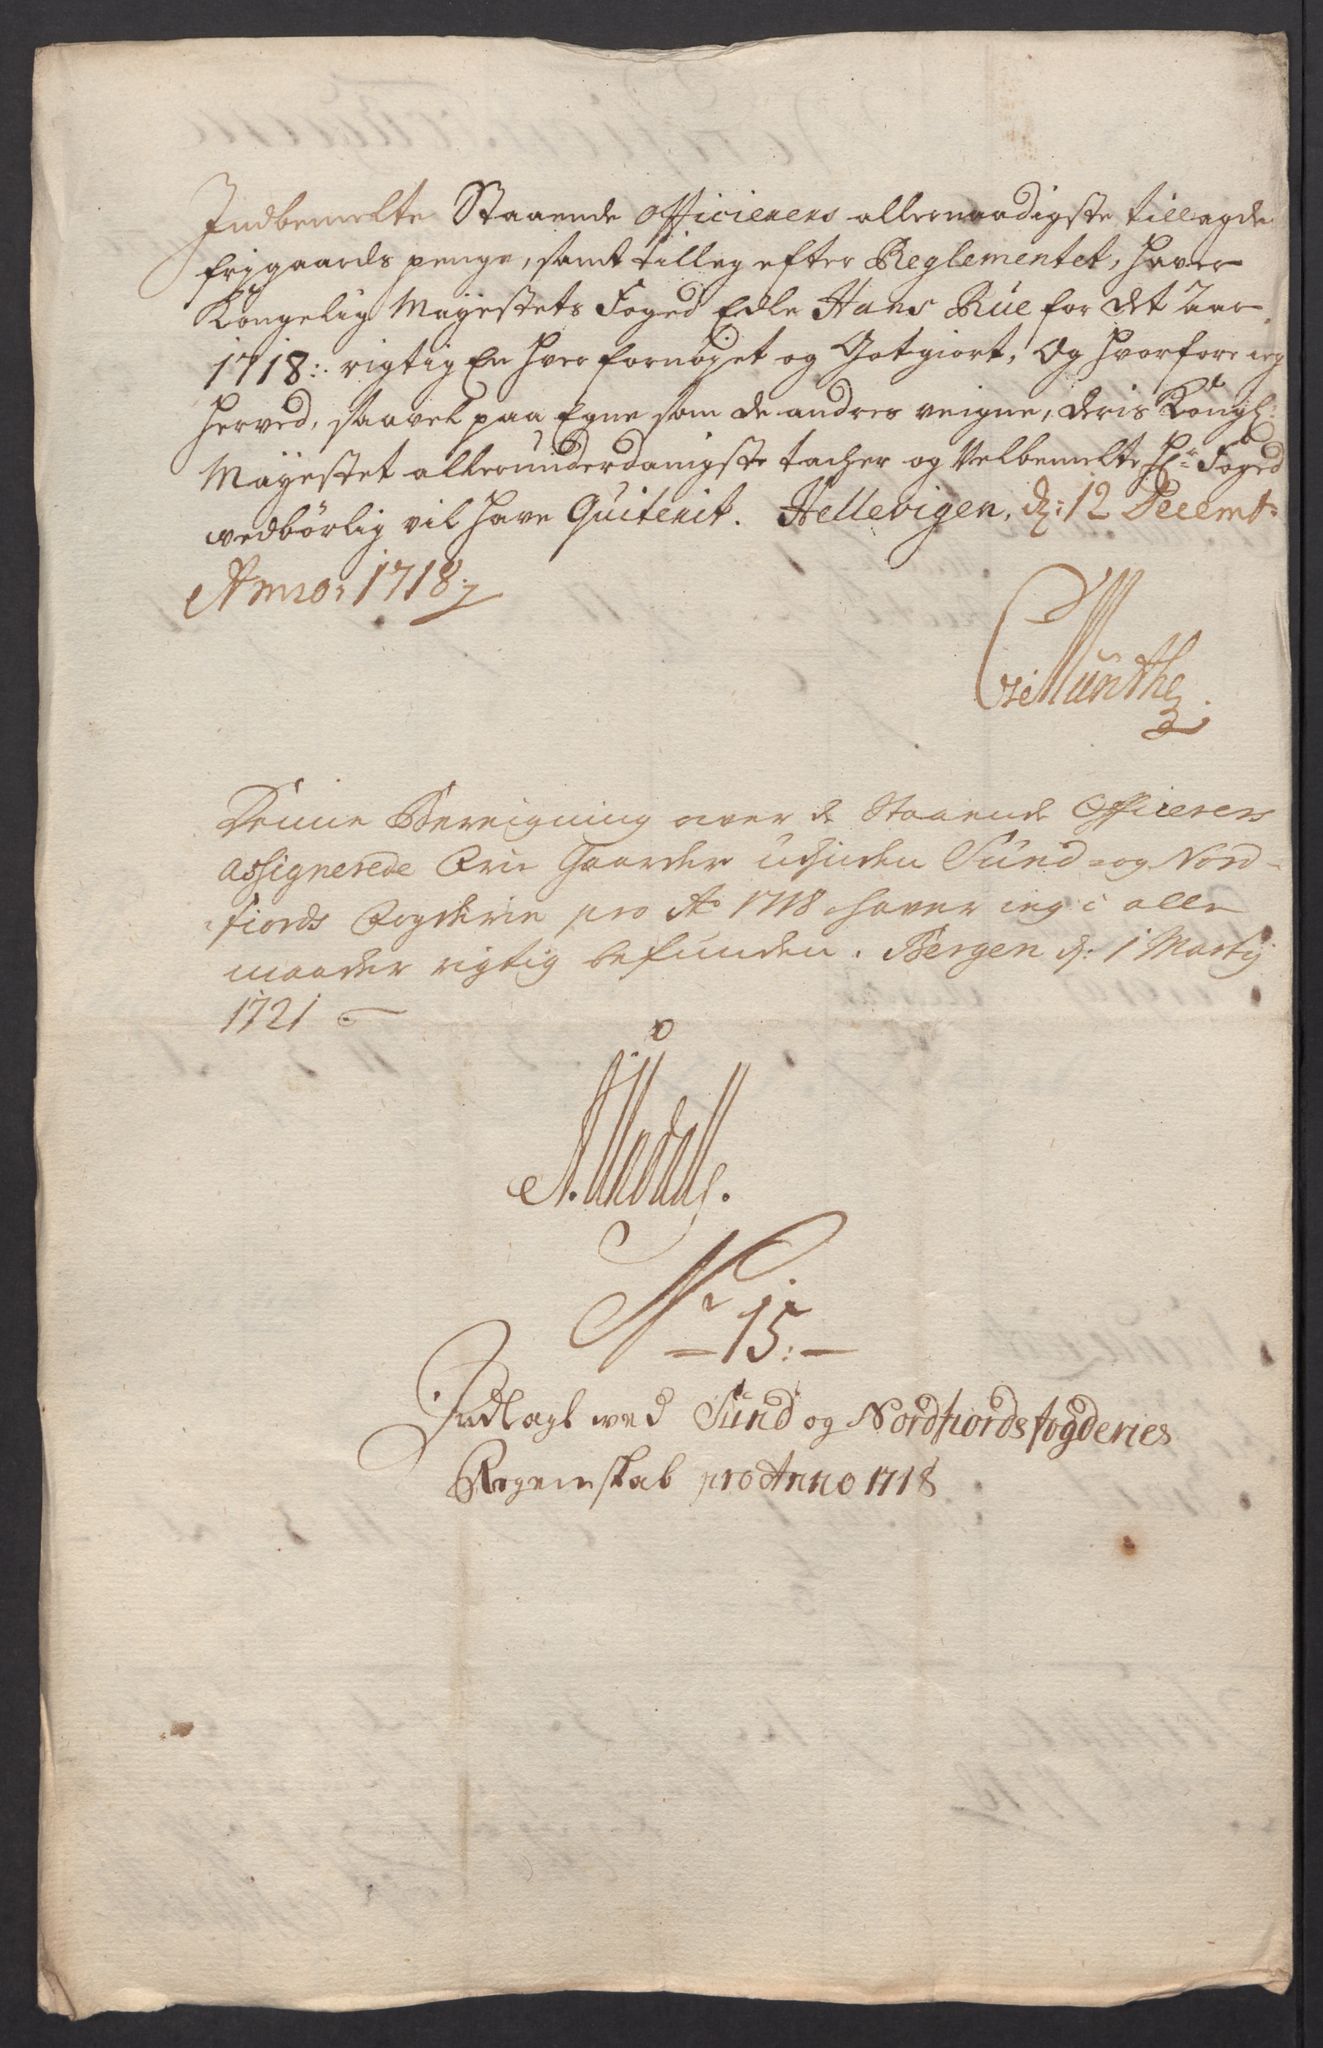 Indbemelte Staaende Officierers allernaadigste tillagde
frijgaards penge, samt tilleg efter Reglementet, haver
Kongelig Mayestets Foged Edle Hans Rüe for det Aar
1718: rigtig En hver fornøyet og Gotgiort, Og hvorfore ieg
herved, saavel paa Egne som de andres veigne, deris Kongl:
Mayestet allerunderdanigste tacher og Velbemelte Hr. Foged
vedbørlig vil have Quiterit. Hellevigen, d: 12 Decembr:
Anno: 1718
Münthe
Denne Bereigning over de Staaende Officerers
assignerede Frie Gaarder udj inden Sund- og Nord-
fiords Fogderie pro Ao 1718 haver ieg i alle
maader rigtig befunden. Bergen d: 1 Martij
1721
Nr 15:
Indlagt ved Sund og Nordfiords fogderies
Regenskab pro Anno 1718